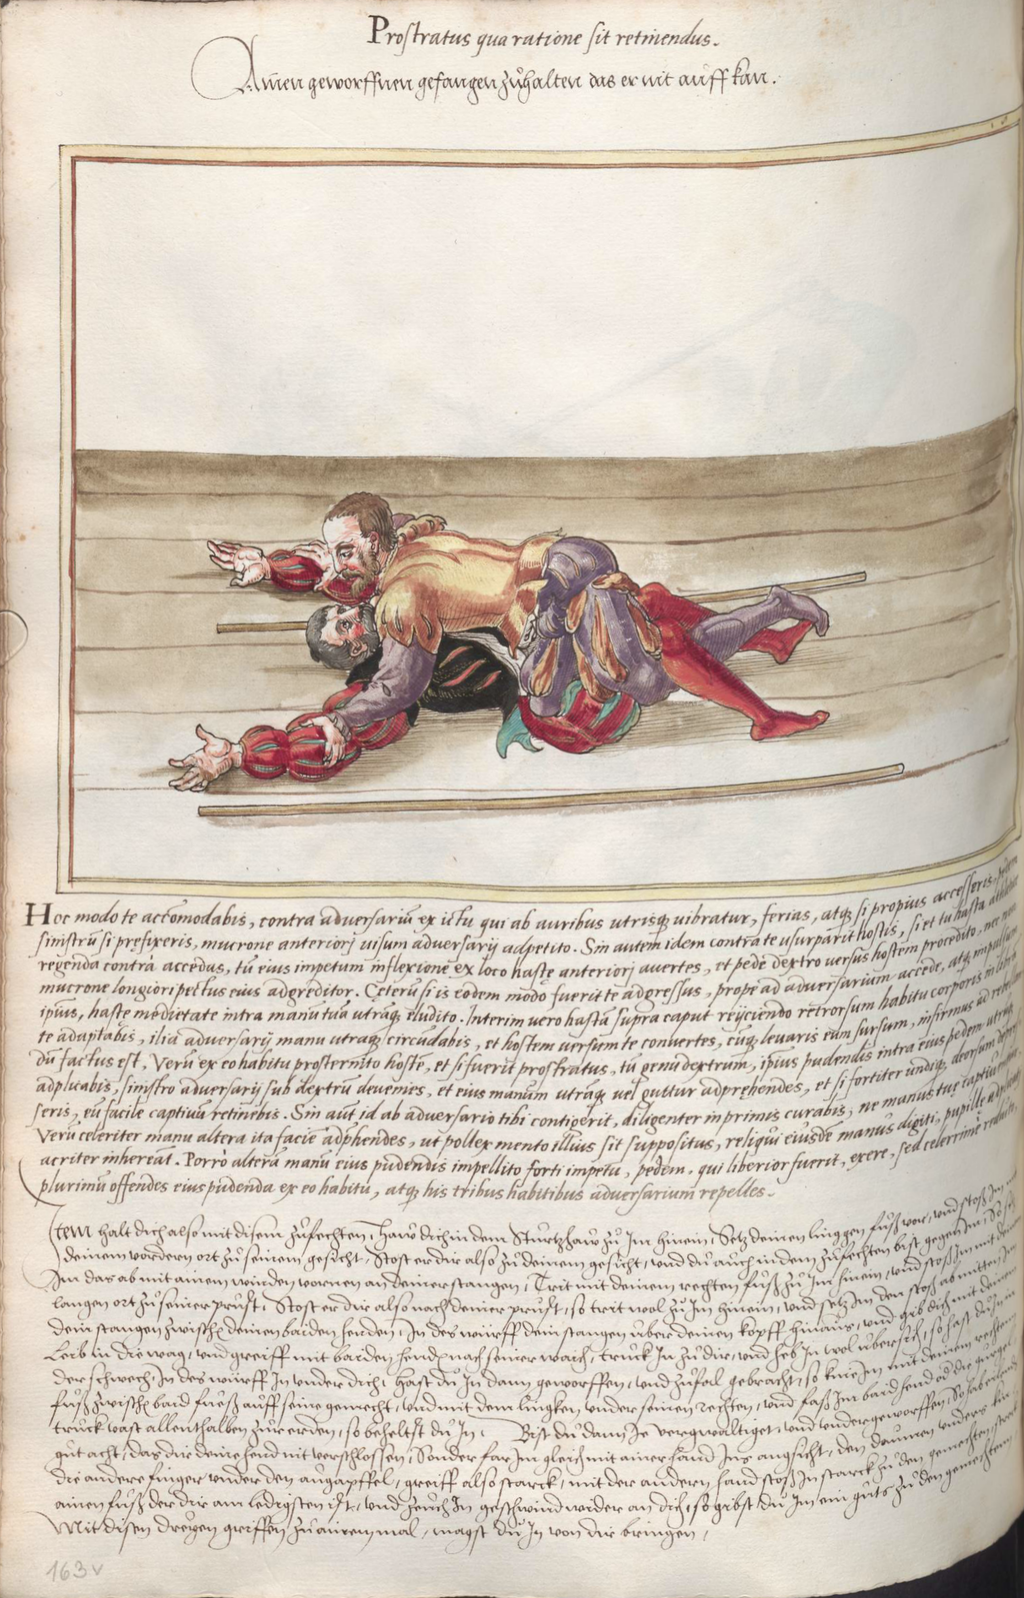 Prostratus qua ratione sit retinendus.
Ainen geworffnen gefangen zůhalten das er nit auff kan.
Hoc modo te accōmodabis, contra adversariū ex ictu qui ab auribus utrisq̃ vibratur, ferias, atq̃ si propius accesseris,
sinistrū si prefixeris, mucrone anteriorj visum adversarij adpetito. Sin autem idem contra te usurparit hostis, si et tu hasta
reijcienda contra accedas, tū eius impetum inflexione ex loco hastę anteriorj avertes, et pede dextro versus hostem procedito,
mucrone longiori pectus eius adgreditor. Ceterū si is eodem modo fuerit te adgressus, prope ad adversarium accede, atq̃
ipsius, haste medietate intra manu tua utraq̃ eludito. Interim vero hastā supra caput reijciendo retrorsum habitu corporis
te adaptabis, ilia adversarij manu utraq̃ circūdabis, et hostem versum te convertes, cumq̃ levaris eum sursum, infirmus
dū factus est, Verū ex eo habitu prosternito hostē, et si fuerit prostratus, tū genu dextrum, ipsius pudendis intra eius pedem
adplicabis, sinistro adversarij sub dextrū devenies, et eius manūm utrāq̃ vel guttur adprehendes, et si fortiter undiq̃ deorsum
seris, eū facile captivū retinebis. Sin aūt id ab adversario tibi contigerit, diligenter inprimis curabis, ne manus tuę
Verū celeriter manu altera ita facie adphendes, ut pollex mento illius sit suppositus, reliqui eiusdē manus digiti, pupillę
acriter inhereāt. Porrò alterā manū eius pudendis impellito forti impetu, pedem, qui liberior fuerit, exere, sed celerrime
plurimū offendes eius pudenda ex eo habitu, atq̃ his tribus habitibus adversarium repelles.
Item halt dich also mit disem zůfechten, haw dich in dem Sturtzhaw zů Im hinein, Setz deinen linggen fůß vor, und stoß Im
deinem vordern ort zů seinem gesicht, Stost er dir also zů deinem gesicht, und du auch in dem zůfechten bist gegen Im,
Im das ab mit ainem winden vornen an deiner stangen, Trit mit deinem rechten fůß zů Im hinein, und stoß Im mit dem
langen ort zů seiner prust, Stost er dir also nach deiner prust, so trit wol zů Im hinein, und setz Im den stoß ab mitten In
dein stangen zwischñ deinen baiden henden, In des würff dein stangen über deinen kopff hinauß, und gib dich mit deinem
Leib in die wag, und greiff mit baiden hendñ nach seiner waich, truck In zů dir, und heb In wol übersich, so hast du In
der schwech, In des würff In under dich, hast du In dann geworffen, und zufal gebracht, so knie Im mit deinem rechten
fůß zwischñ baid fueß auff seine gemecht, und mit dem lingken under seinen rechten, und faß Im baid hend od̃ die gurgel
truck vast allenthalben zur erden, so beheltst du In, Bist du dann Je vergwaltiget, und undergeworffen, So hab
gut acht, das dir deine hend nit verschlossen, Sonder far Im gleich mit ainer hand Ins angsicht, den daumen unders
die andere finger under den augapffel, greiff also starck, mit der andern hand stoß In starck zů den gemechten
ainen fůß der dir am ledigsten ist, und zeuch In geschwind wider an dich, so gibst du Im ein guts zů den gemechten
Mit disen dreyen griffen zů ainem mal, magst du In von dir bringen,
163v